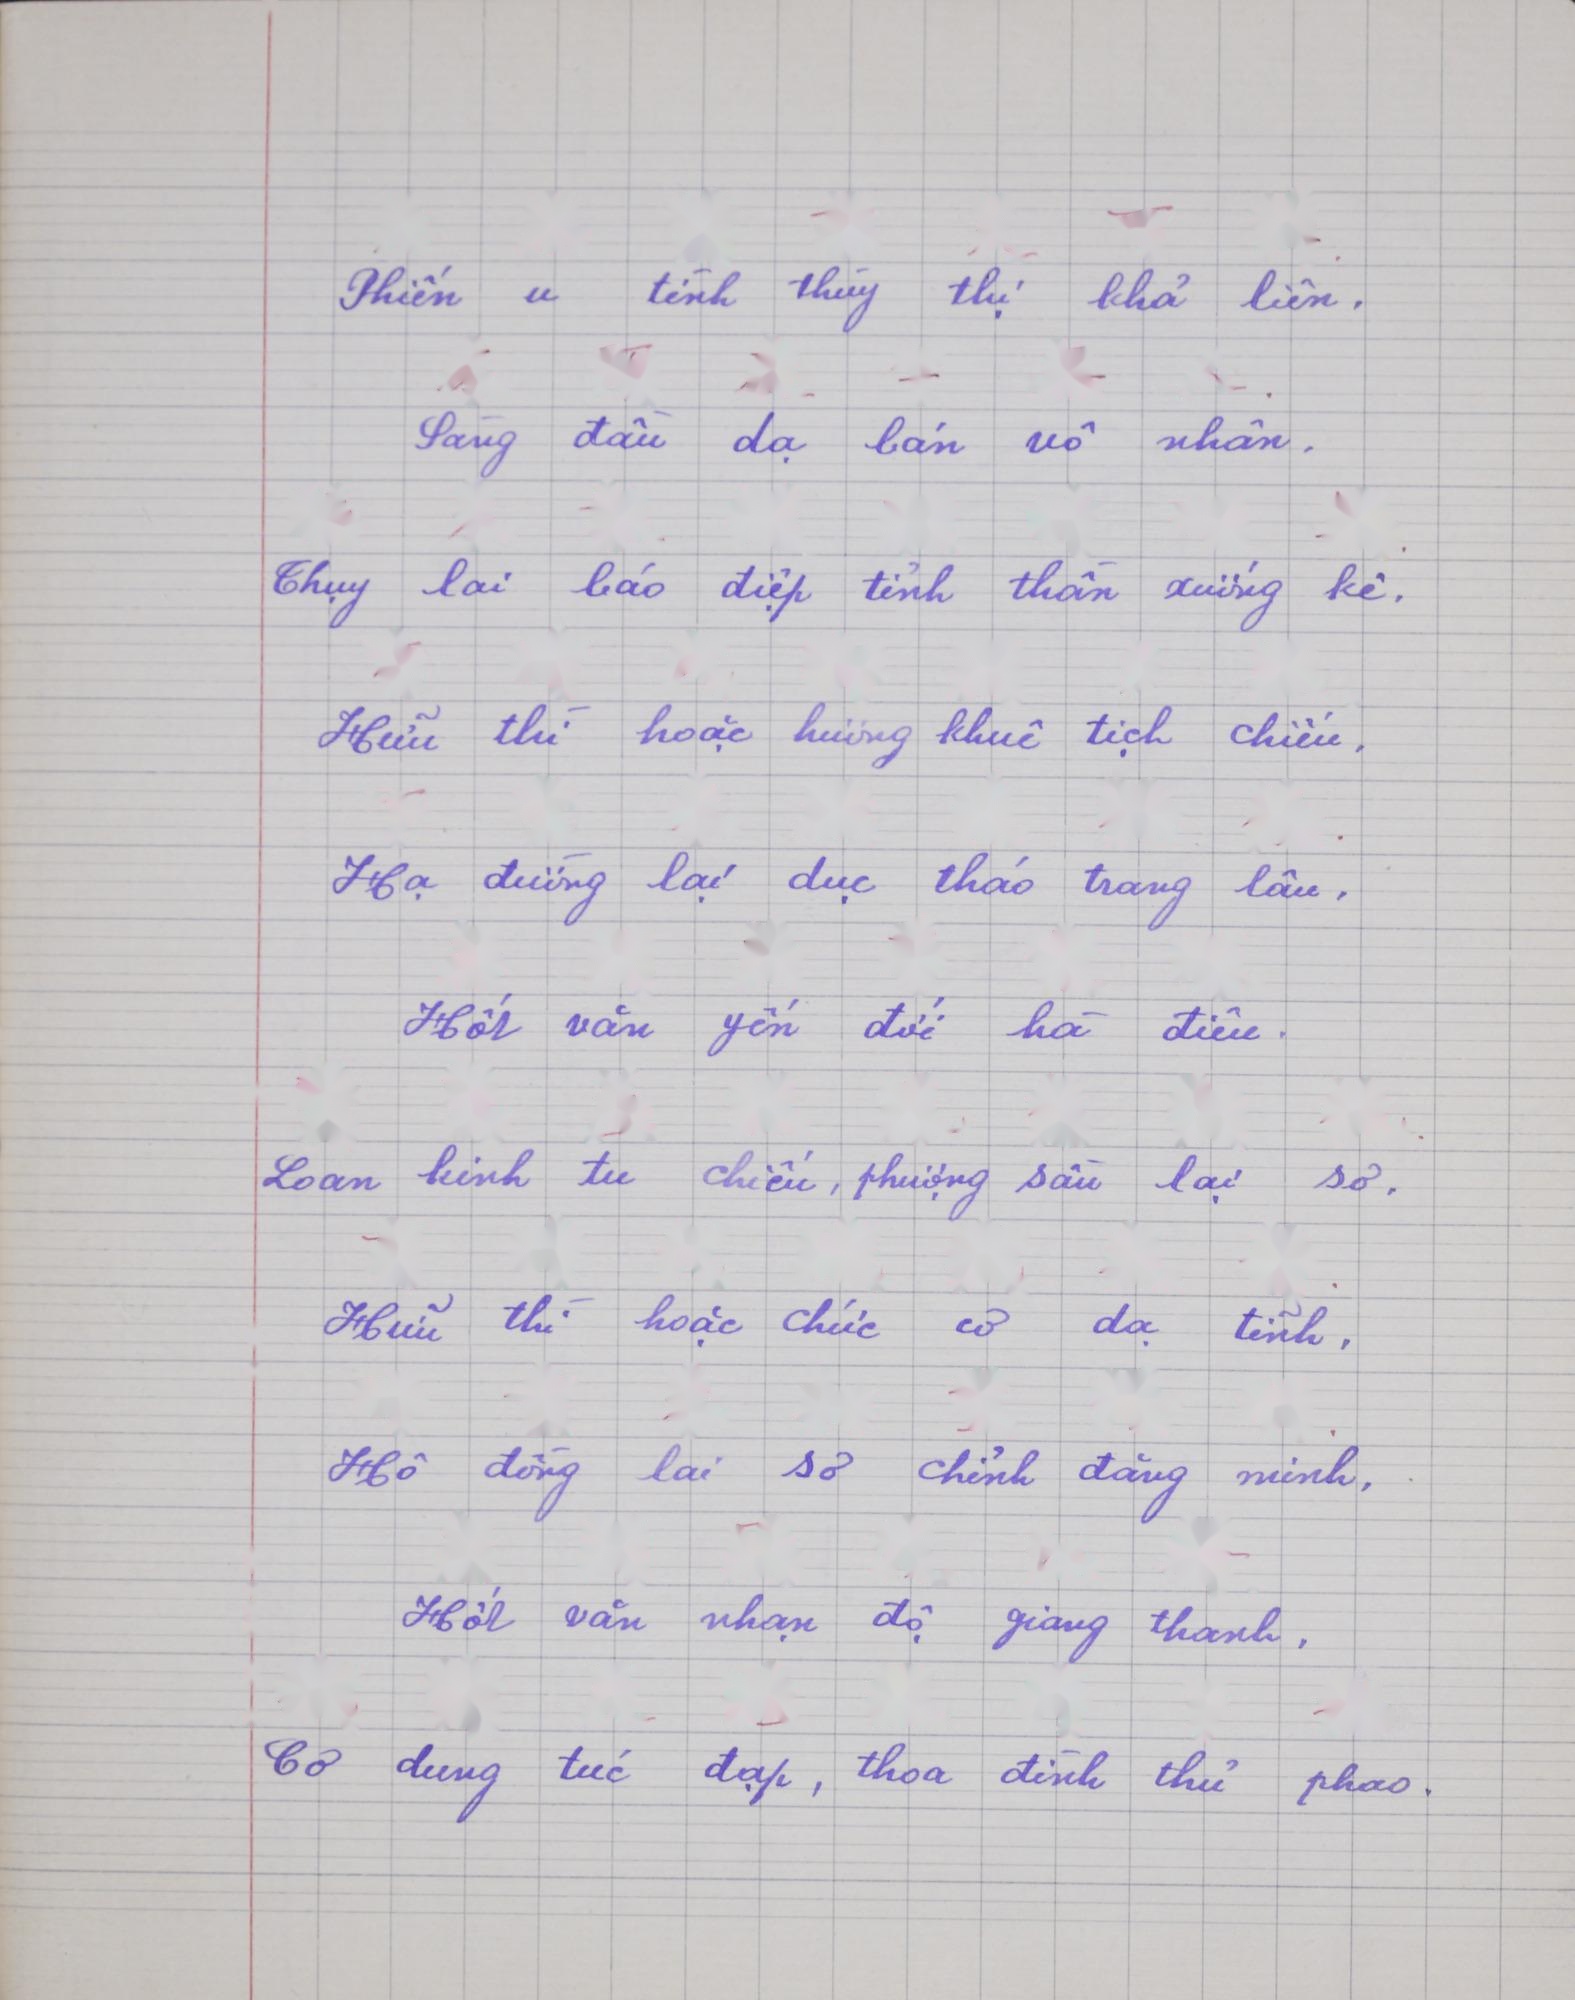 Phiến u tình thùy thị khả liên,
Sàng đầu dạ bán vô nhân.
Thụy lai báo điệp tỉnh thần xướng kê.
Hữu thì hoặc hương khuê tịch chiếu,
Hạ đường lai dục tháo trang lâu,
Hốt văn yến đối hà điêu.
Loan kinh tu chiếu, phượng sầu lại sơ.
Hữu thì hoặc chức cơ dạ tĩnh,
Hô đồng lai sơ chỉnh đăng minh,
Hốt văn nhạn độ giang thanh,
Cơ dung túc đạp, thoa đình thủ phao.